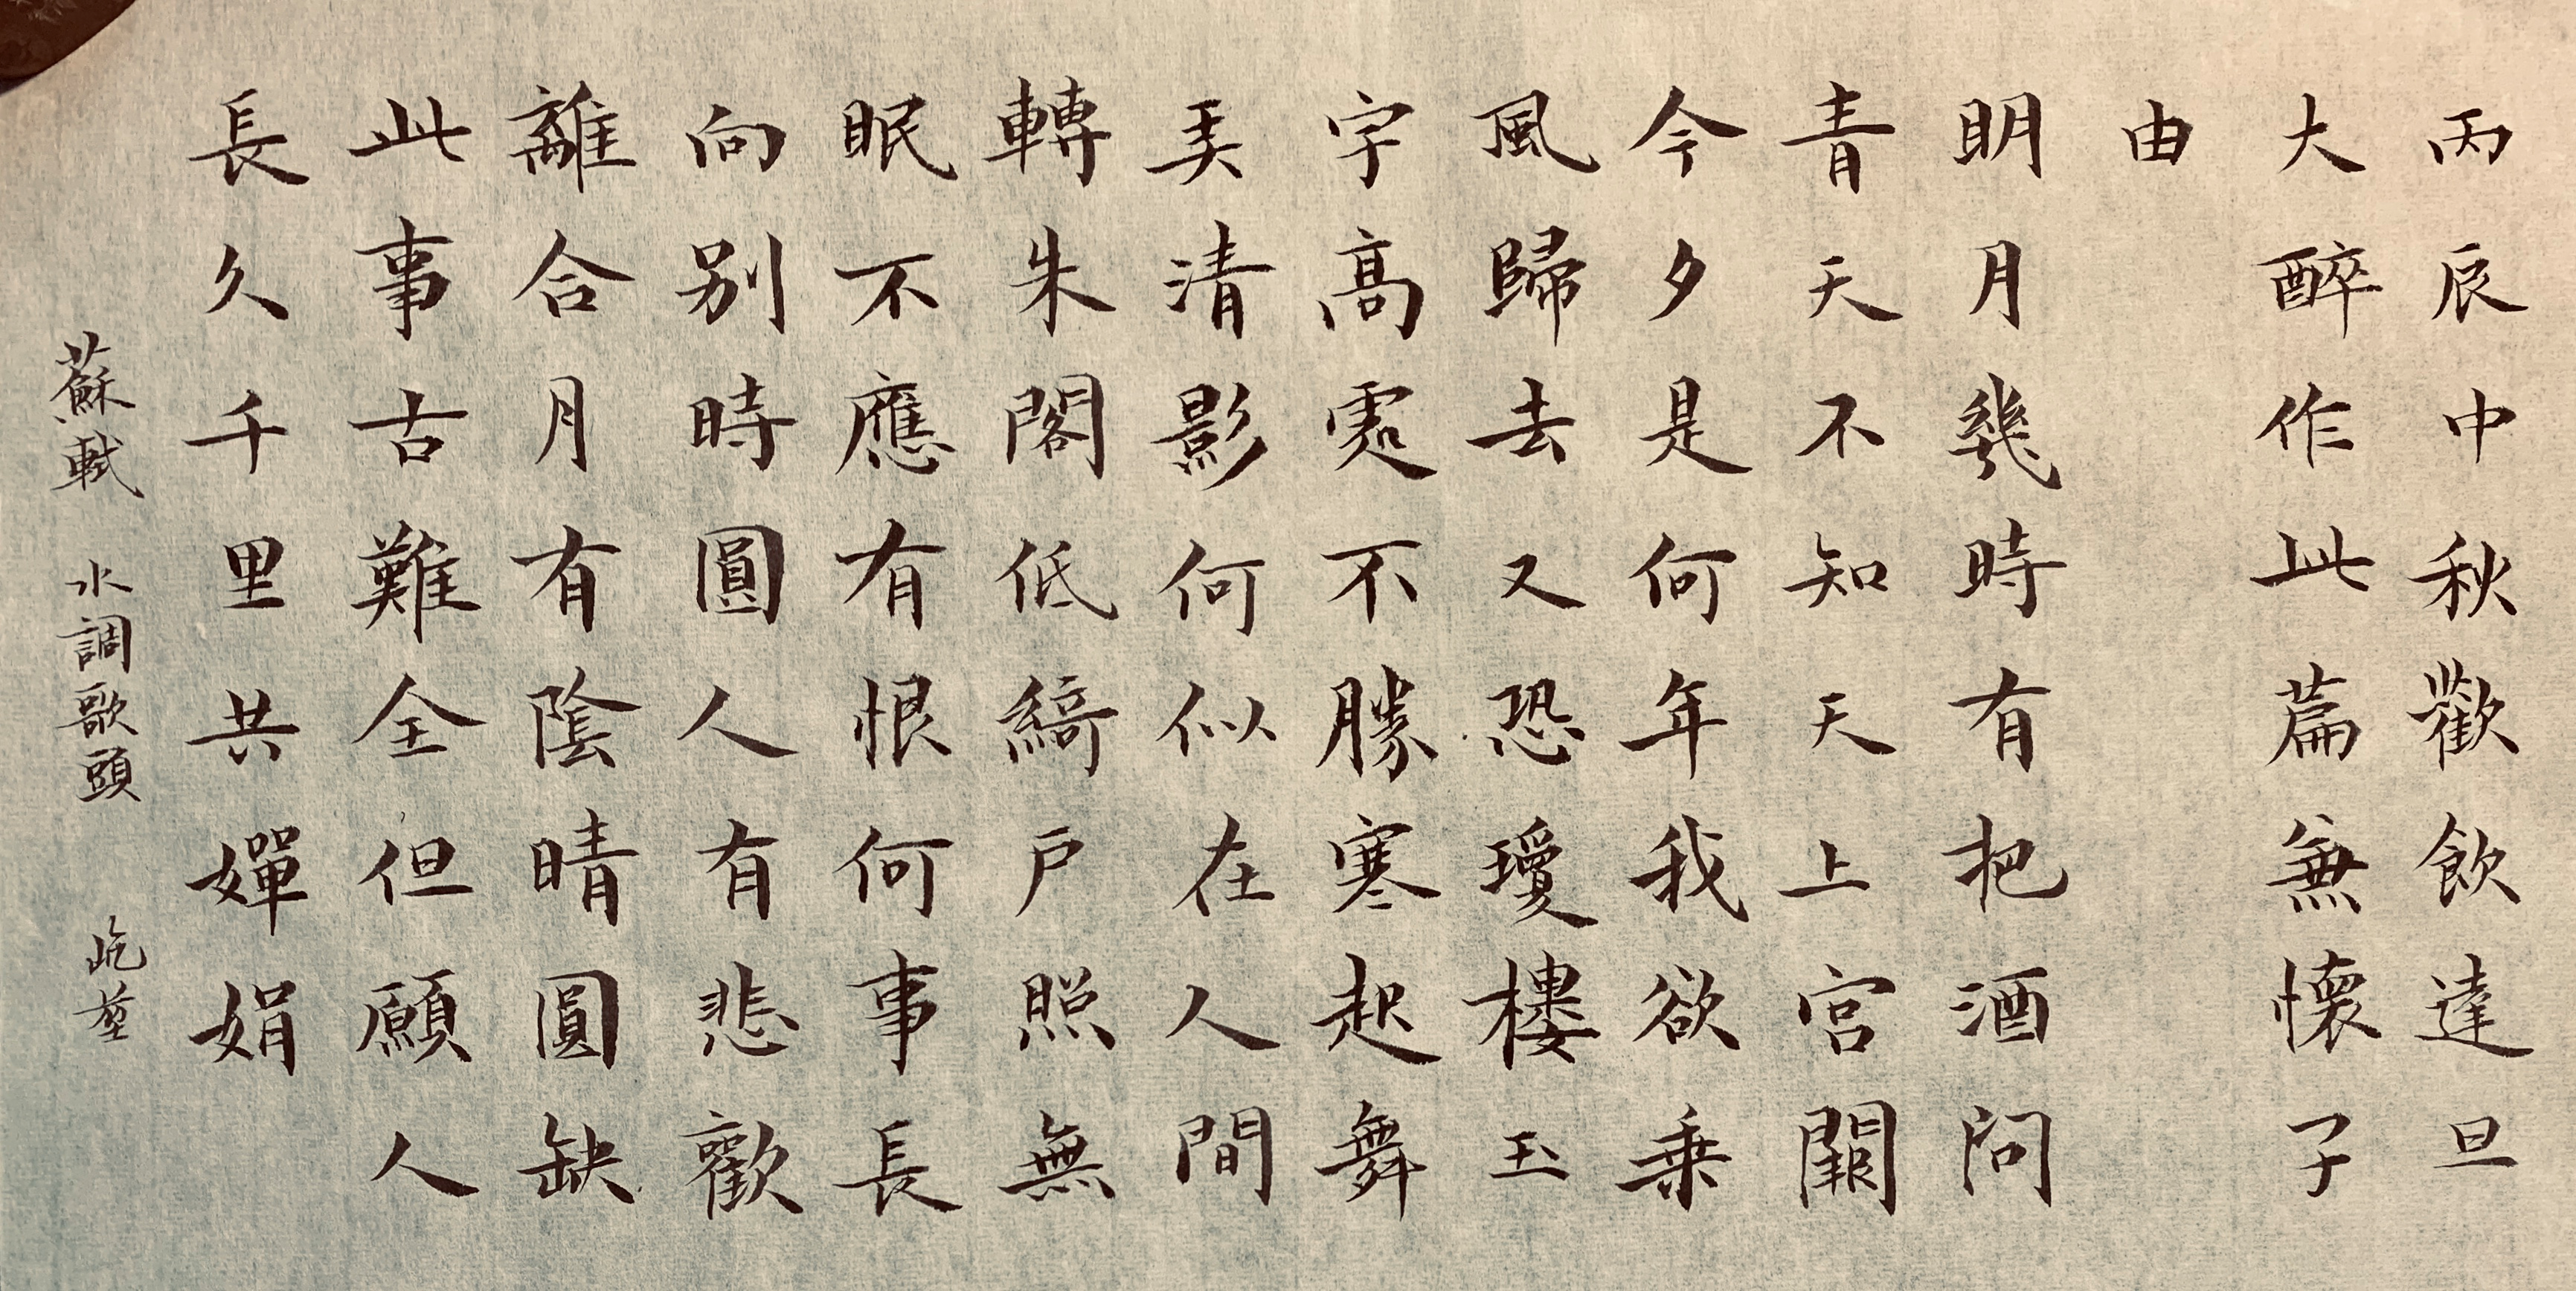 丙辰中秋歡飲達旦
大醉作此篇無懷子
由
明月幾時有把酒問
青天不知天上宮闕
今夕是何年我欲乘
風歸去又恐瓊樓玉
宇高處不勝寒起舞
弄清影何似在人間
轉朱閣低綺戶照無
眠不應有恨何事長
向别時圓人有悲歡
離合月有陰晴圓缺
此事古難全但願人
長久千里共嬋娟
蘇軾 水調歌頭